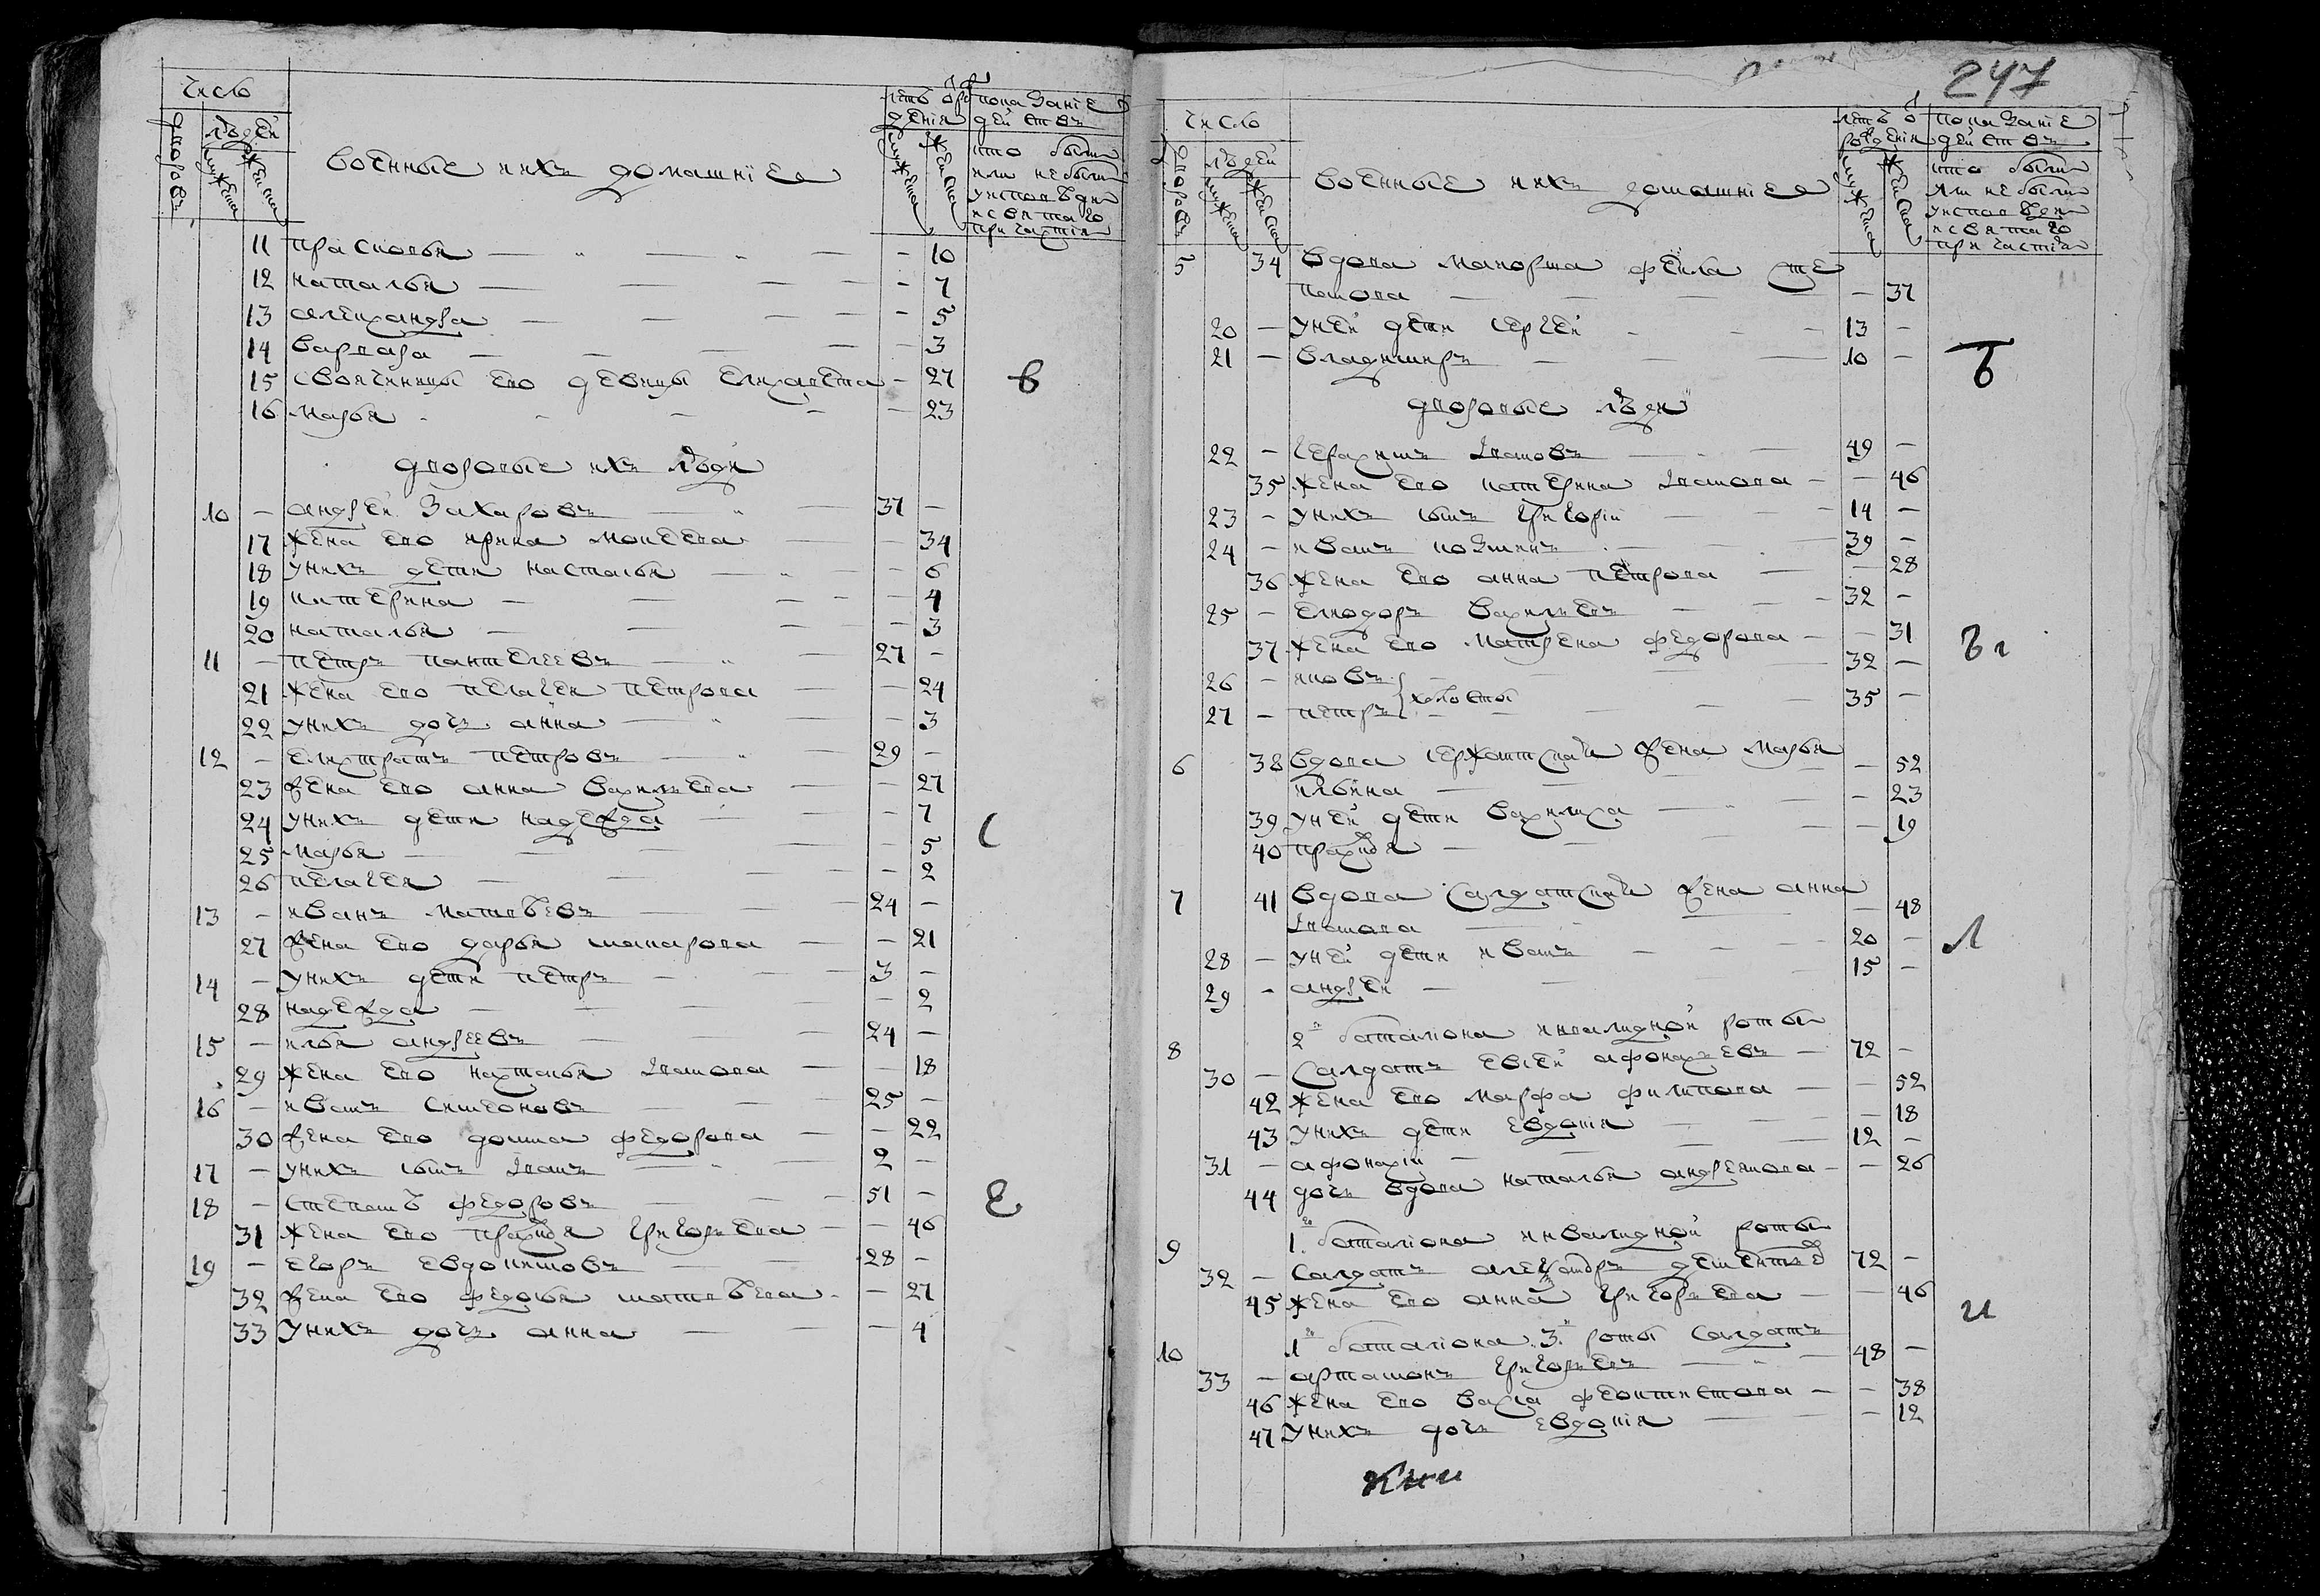 Число
дворовъ
людей
мужеска
женска
военные и ихъ домашніе
летъ о рж
денія
мужеска
женска
показаніе
действъ
кто были
или не были
у исповѣди
и святаго
причастія
11 прасковья 10
12 наталья 7
13 александра 5
14 варвара 3
15 своячиницы ево девицы елизавета 27
16 марья 23
дворовые ихъ люди
10 андрей захаровъ 37
17 жена ево ирина мокеева 34
18 у нихъ дети настасья 6
19 катерина 4
20 наталья 3
11 петръ пантелеевъ 27
21 жена ево пелагея петрова 24
22 у нихъ дочь анна 3
12 елистратъ петровъ 29
23 жена ево анна васильева 27
24 у нихъ дети надежда 7
25 марья 5
26 пелагея 2
13 иванъ матвѣевъ 24
27 жена ево дарья макарова 21
14 у нихъ дети петръ 3
28 надежда 2
15 илья андреевъ 24
29 жена ево настасья иванова 18
16 иванъ симеоновъ 25
30 жена ево домна федорова 22
17 у нихъ сынъ иванъ 2
18 степанъ федоровъ 51
31 жена ево праскоя григорьева 46
19 егоръ евдокимовъ 28
32 жена ево федосья матвѣева 27
33 у нихъ дочь анна 4
247
Число
дворовъ
людей
мужеска
женска
военные и ихъ домашніе
летъ о
рожденія
мужеска
женска
показаніе
действъ
кто были
или не были
у исповѣди
и святаго
причастія
5 34 вдова маиорша фекла сте
панова 37
20 у ней дети сергей 13
21 владимиръ 10
дворовые люди
22 герасимъ ивановъ 49
35 жена ево катерина иванова 46
23 у нихъ сынъ григорій 14
24 иванъ козминъ 39
36 жена ево анна петрова 28
25 васильевъ 32
37 жена ево матрена федорова 31
26 яковъ 32
холосты
27 петръ 35
6 38 вдова сержантская жена марья
ильина 52
39 у ней дети василиса 23
40 19
7 41 вдова салдатская жена анна
иванова 48
28 у ней дети иванъ 20
29 андрей 15
8 2 баталіона инвалидной роты
30 салдатъ афонасьевъ 72
42 жена ево марфа филипова 52
43 у нихъ дети евдокія 18
31 афонасій 12
44 дочь вдова наталья 26
9 1го баталіона инвалидной роты
32 салдатъ александръ дементьев 72
45 жена ево анна григорьева 46
10 1 баталіона 3 роты салдатъ
33 артамонъ григорьевъ 48
46 жена ево васса феоктистова 38
47 у нихъ дочь евдокія 12